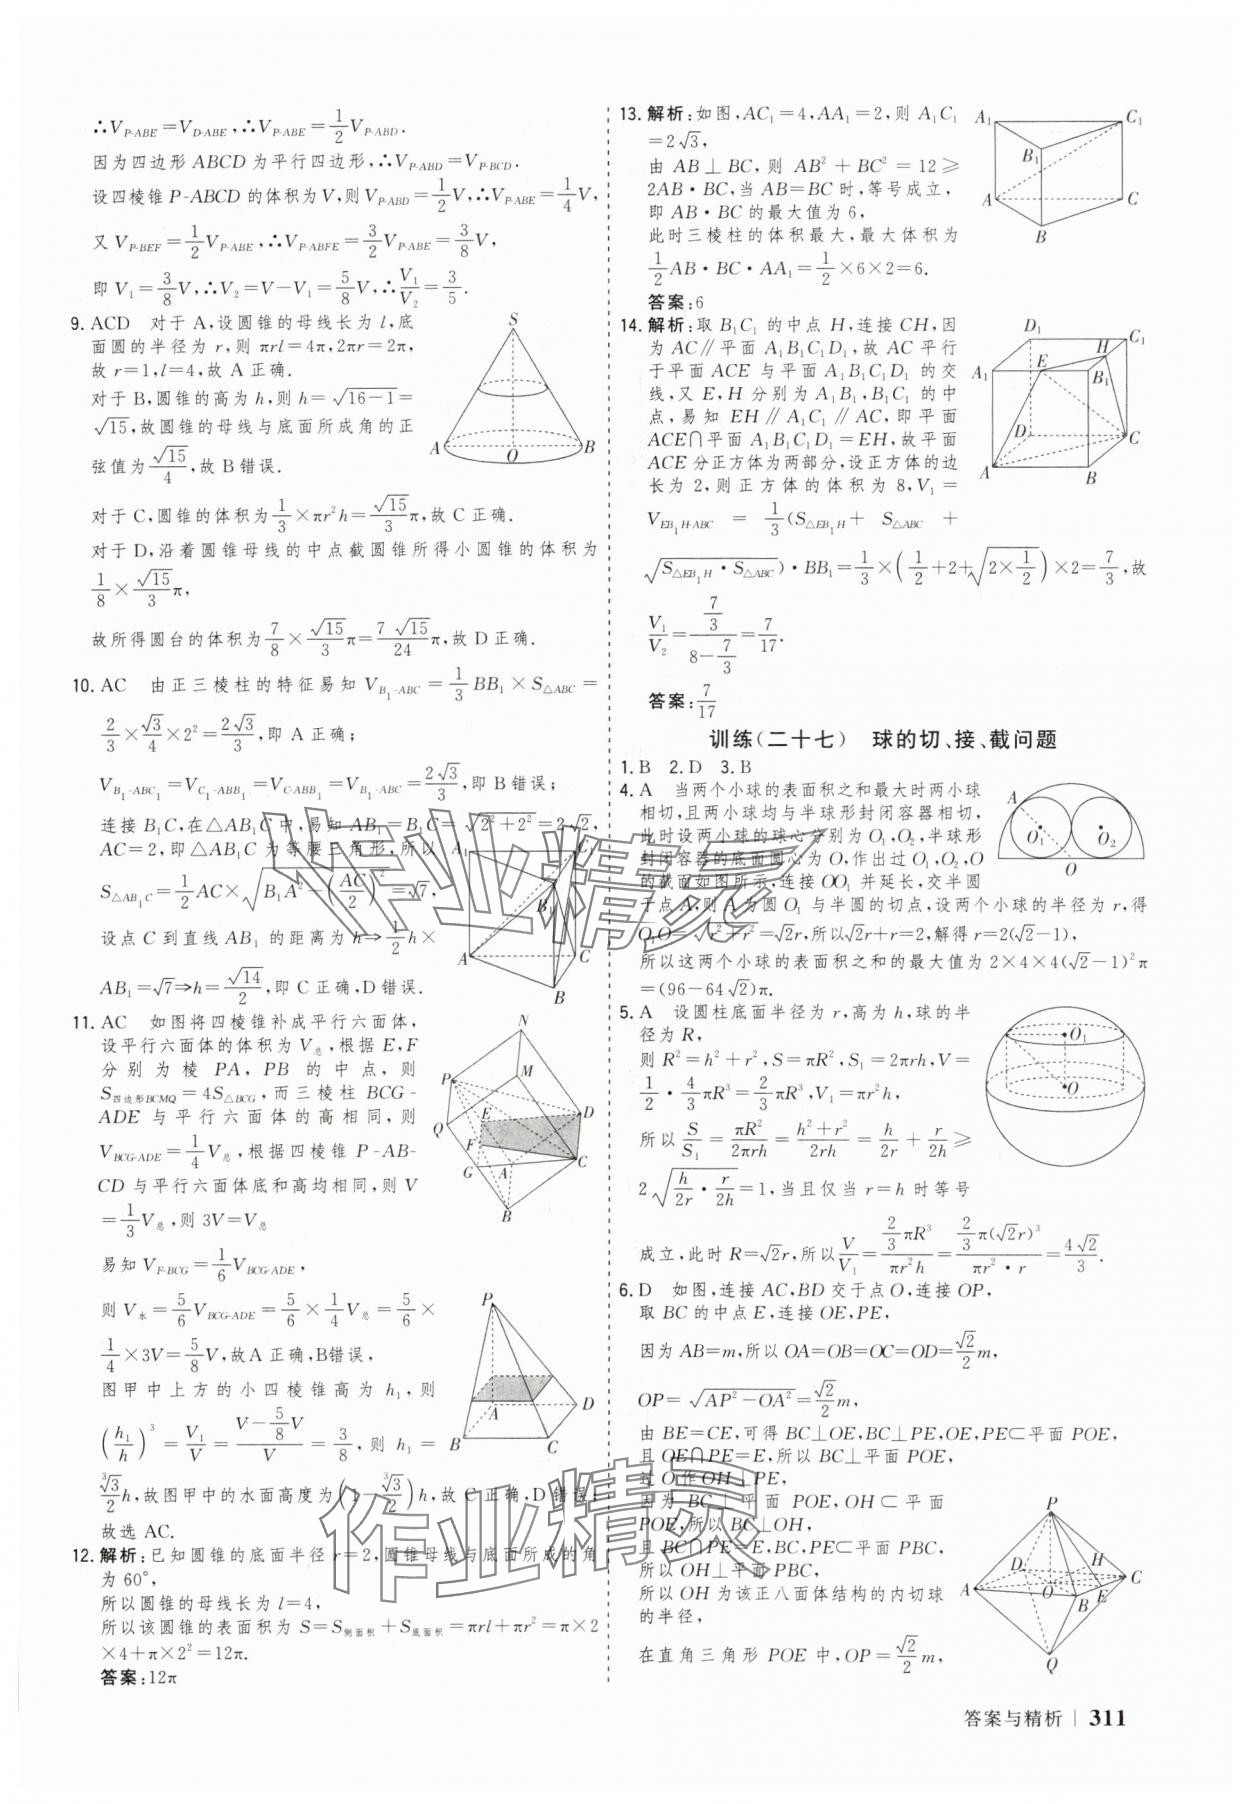 ∴V_{P-ABE}=V_{D-ABE},∴V_{P-ABE}=\frac{1}{2}V_{P-ABD}.
因为四边形ABCD为平行四边形,∴V_{P-ABD}=V_{P-BCD}.
设四棱锥P-ABCD的体积为V,则V_{P-ABD}=\frac{1}{2}V,∴V_{P-ABE}=\frac{1}{4}V,
又V_{P-BEF}=\frac{1}{2}V_{P-ABE},∴V_{P-ABFE}=\frac{3}{2}V_{P-ABE}=\frac{3}{8}V,
即V₁=\frac{3}{8}V,∴V₂=V-V₁=\frac{5}{8}V,∴\frac{V₁}{V₂}=\frac{3}{5}.
9. ACD 对于A,设圆锥的母线长为l,底
面圆的半径为r,则πrl=4π,2πr=2π,
故r=1,l=4,故A正确.
对于B,圆锥的高为h,则h=√(16-1)=
√15,故圆锥的母线与底面所成角的正
弦值为\frac{√15}{4},故B错误.
对于C,圆锥的体积为\frac{1}{3}×πr²h=\frac{√15}{3}π,故C正确.
对于D,沿着圆锥母线的中点截圆锥所得小圆锥的体积为
\frac{1}{8}×\frac{√15}{3}π,
故所得圆台的体积为\frac{7}{8}×\frac{√15}{3}π=\frac{7√15}{24}π,故D正确.
10. AC 由正三棱柱的特征易知V_{B₁-ABC}=\frac{1}{3}BB₁×S_{△ABC}=
\frac{2}{3}×\frac{√3}{4}×2²=\frac{2√3}{3},即A正确;
V_{B₁-ABC₁}=V_{C₁-ABB₁}=V_{C-ABB₁}=V_{B₁-ABC}=\frac{2√3}{3},即B错误;
连接B₁C,在△AB₁C中,易知AB₁=B₁C=√(2²+2²)=2√2,
AC=2,即△AB₁C为等腰三角形,所以
S_{△AB₁C}=\frac{1}{2}AC×√(B₁A²-(\frac{AC}{2})²)=√7,
设点C到直线AB₁的距离为h⇒\frac{1}{2}h×
AB₁=√7⇒h=\frac{√14}{2},即C正确,D错误.
11. AC 如图将四棱锥补成平行六面体,
设平行六面体的体积为V_总,根据E,F
分别为棱PA,PB的中点,则
S_{四边形BCMQ}=4S_{△BCG},而三棱柱BCG-
ADE与平行六面体的高相同,则
V_{BCG-ADE}=\frac{1}{4}V_总,根据四棱锥P-AB-
CD与平行六面体底和高均相同,则V
=\frac{1}{3}V_总,则3V=V_总
易知V_{F-BCG}=\frac{1}{6}V_{BCG-ADE},
则V_水=\frac{5}{6}V_{BCG-ADE}=\frac{5}{6}×\frac{1}{4}V_总=\frac{5}{6}×
\frac{1}{4}×3V=\frac{5}{8}V,故A正确,B错误,
图甲中上方的小四棱锥高为h₁,则
(\frac{h₁}{h})³=\frac{V₁}{V}=\frac{V-\frac{5}{8}V}{V}=\frac{3}{8},则h₁=
\frac{∛3}{2}h,故图甲中的水面高度为(1-\frac{∛3}{2})h,故C正确,D错误;
故选AC.
12. 解析:已知圆锥的底面半径r=2,圆锥母线与底面所成的角
为60°,
所以圆锥的母线长为l=4,
所以该圆锥的表面积为S=S_{侧面积}+S_{底面积}=πrl+πr²=π×2
×4+π×2²=12π.
答案:12π
13. 解析:如图,AC₁=4,AA₁=2,则A₁C₁
=2√3,
由AB⊥BC,则AB²+BC²=12≥
2AB·BC,当AB=BC时,等号成立,
即AB·BC的最大值为6,
此时三棱柱的体积最大,最大体积为
\frac{1}{2}AB·BC·AA₁=\frac{1}{2}×6×2=6.
答案:6
14. 解析:取B₁C₁的中点H,连接CH,因
为AC∥平面A₁B₁C₁D₁,故AC平行
于平面ACE与平面A₁B₁C₁D₁的交
线,又E,H分别为A₁B₁,B₁C₁的中
点,易知EH∥A₁C₁∥AC,即平面
ACE∩平面A₁B₁C₁D₁=EH,故平面
ACE分正方体为两部分,设正方体的边
长为2,则正方体的体积为8,V₁=
V_{EB₁H-ABC}=\frac{1}{3}(S_{△EB₁H}+S_{△ABC}+
√(S_{△EB₁H}·S_{△ABC}))·BB₁=\frac{1}{3}×(\frac{1}{2}+2+√(2×\frac{1}{2}))×2=\frac{7}{3},故
\frac{V₁}{V₂}=\frac{\frac{7}{3}}{8-\frac{7}{3}}=\frac{7}{17}.
答案:\frac{7}{17}
训练(二十七) 球的切、接、截问题
1. B 2. D 3. B
4. A 当两个小球的表面积之和最大时两小球
相切,且两小球均与半球形封闭容器相切,
此时设两小球的球心分别为O₁,O₂,半球形
封闭容器的底面圆心为O,作出过O₁,O₂,O
的截面如图所示,连接OO₁并延长,交半圆
于点A,则A为圆O₁与半圆的切点,设两个小球的半径为r,得
O₁O=√(r²+r²)=√2r,所以√2r+r=2,解得r=2(√2-1),
所以这两个小球的表面积之和的最大值为2×4×4(√2-1)²π
=(96-64√2)π.
5. A 设圆柱底面半径为r,高为h,球的半
径为R,
则R²=h²+r²,S=πR²,S₁=2πrh,V=
\frac{1}{2}·\frac{4}{3}πR³=\frac{2}{3}πR³,V₁=πr²h,
所以\frac{S}{S₁}=\frac{πR²}{2πrh}=\frac{h²+r²}{2rh}=\frac{h}{2r}+\frac{r}{2h}≥
2√(\frac{h}{2r}·\frac{r}{2h})=1,当且仅当r=h时等号
成立,此时R=√2r,所以\frac{V}{V₁}=\frac{\frac{2}{3}πR³}{πr²h}=\frac{\frac{2}{3}π(√2r)³}{πr²·r}=\frac{4√2}{3}.
6. D 如图,连接AC,BD交于点O,连接OP,
取BC的中点E,连接OE,PE,
因为AB=m,所以OA=OB=OC=OD=\frac{√2}{2}m,
OP=√(AP²-OA²)=\frac{√2}{2}m,
由BE=CE,可得BC⊥OE,BC⊥PE,OE,PE⊂平面POE,
且OE∩PE=E,所以BC⊥平面POE,
过O作OH⊥PE,
因为BC⊥平面POE,OH⊂平面
POE,所以BC⊥OH,
且BC∩PE=E,BC,PE⊂平面PBC,
所以OH⊥平面PBC,
所以OH为该正八面体结构的内切球
的半径,
在直角三角形POE中,OP=\frac{√2}{2}m,
答案与精析 | 311
作业精灵
作业精灵